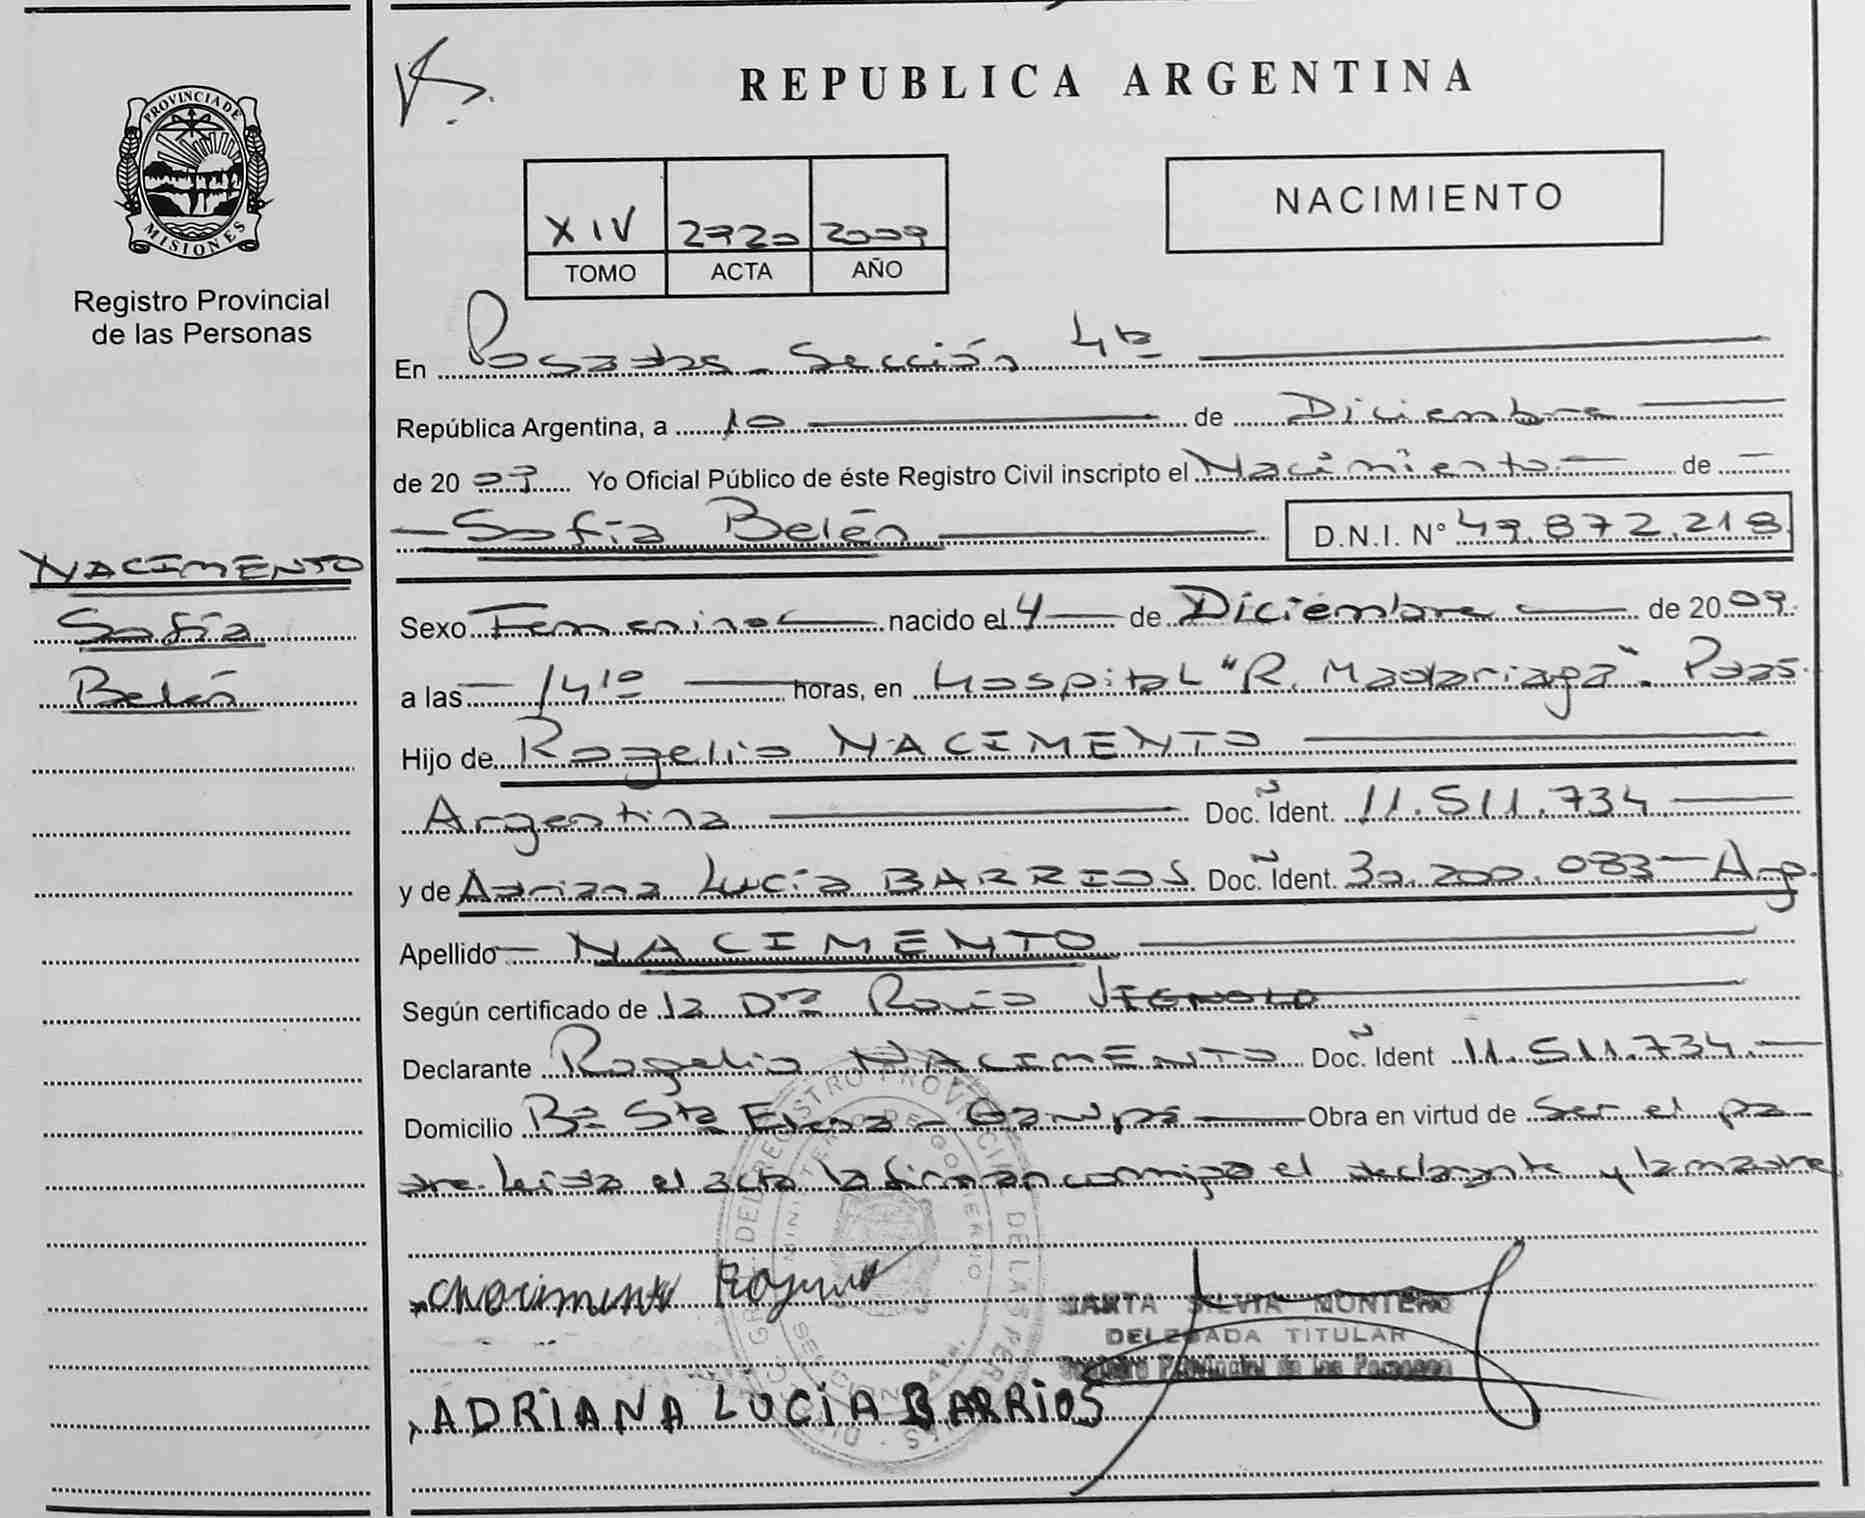 REPUBLICA ARGENTINA
PROVINCIA DE
MISIONES
Registro Provincial
de las Personas
XIV 2720 2009
TOMO ACTA AÑO
NACIMIENTO
En Posadas - Sección 4ta
República Argentina, a 10 de Diciembre
de 20 09 Yo Oficial Público de éste Registro Civil inscripto el Nacimiento de
Sofía Belén D.N.I. N° 49.872.218
NACIMENTO
Sofía
Belén
Sexo Femenino nacido el 4 de Diciembre de 20 09
a las 14 10 horas, en Hospital "R. Madariaga". Pdas.
Hijo de Rogelio NACIMENTO
Argentina Doc. Ñ Ident. 11.511.734
y de Adriana Lucía BARRIOS Doc. Ñ Ident. 30.200.083 - Arg.
Apellido NACIMENTO
Según certificado de la Dra Rocío VIGNOLO
Declarante Rogelio NACIMENTO Doc. Ñ Ident 11.511.734.
Domicilio Bº Sta Elena - Garupá Obra en virtud de Ser el pa
dre. Leida el acta la firman conmigo el declarante y la madre
Nacimento Rogelio
MARTA SILVIA MONTERO
DELEGADA TITULAR
Registro Provincial de las Personas
ADRIANA LUCIA BARRIOS